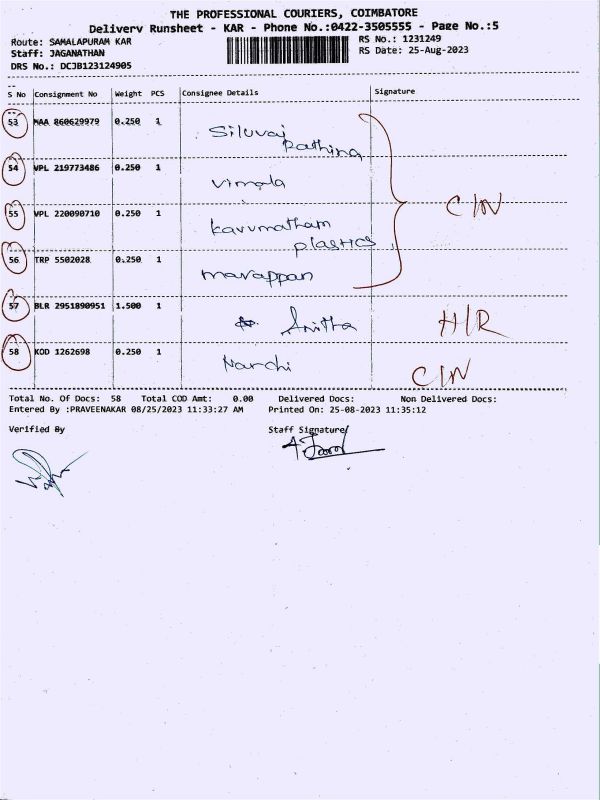 THE PROFESSIONAL COURIERS, COIMBATORE
Delivery Runsheet - KAR - Phone No.:0422-3505555 - Page No.:5
Route: SAMALAPURAM KAR
RS No.: 1231249
Staff: JAGANATHAN
RS Date: 25-Aug-2023
DRS No.: DCJB123124905
S No Consignment No Weight PCS Consignee Details Signature
53 MAA 860629979 0.250 1 Siluvai
Pathina
54 VPL 219773486 0.250 1 Vimala
55 VPL 220090710 0.250 1 Karumatham
plastics
C/N
56 TRP 5502028 0.250 1 marappan
57 BLR 2951890951 1.500 1 Anitha H/R
58 KOD 1262698 0.250 1 Narchi C/N
Total No. Of Docs: 58 Total COD Amt: 0.00 Delivered Docs: Non Delivered Docs:
Entered By :PRAVEENAKAR 08/25/2023 11:33:27 AM Printed On: 25-08-2023 11:35:12
Verified By Staff Signature